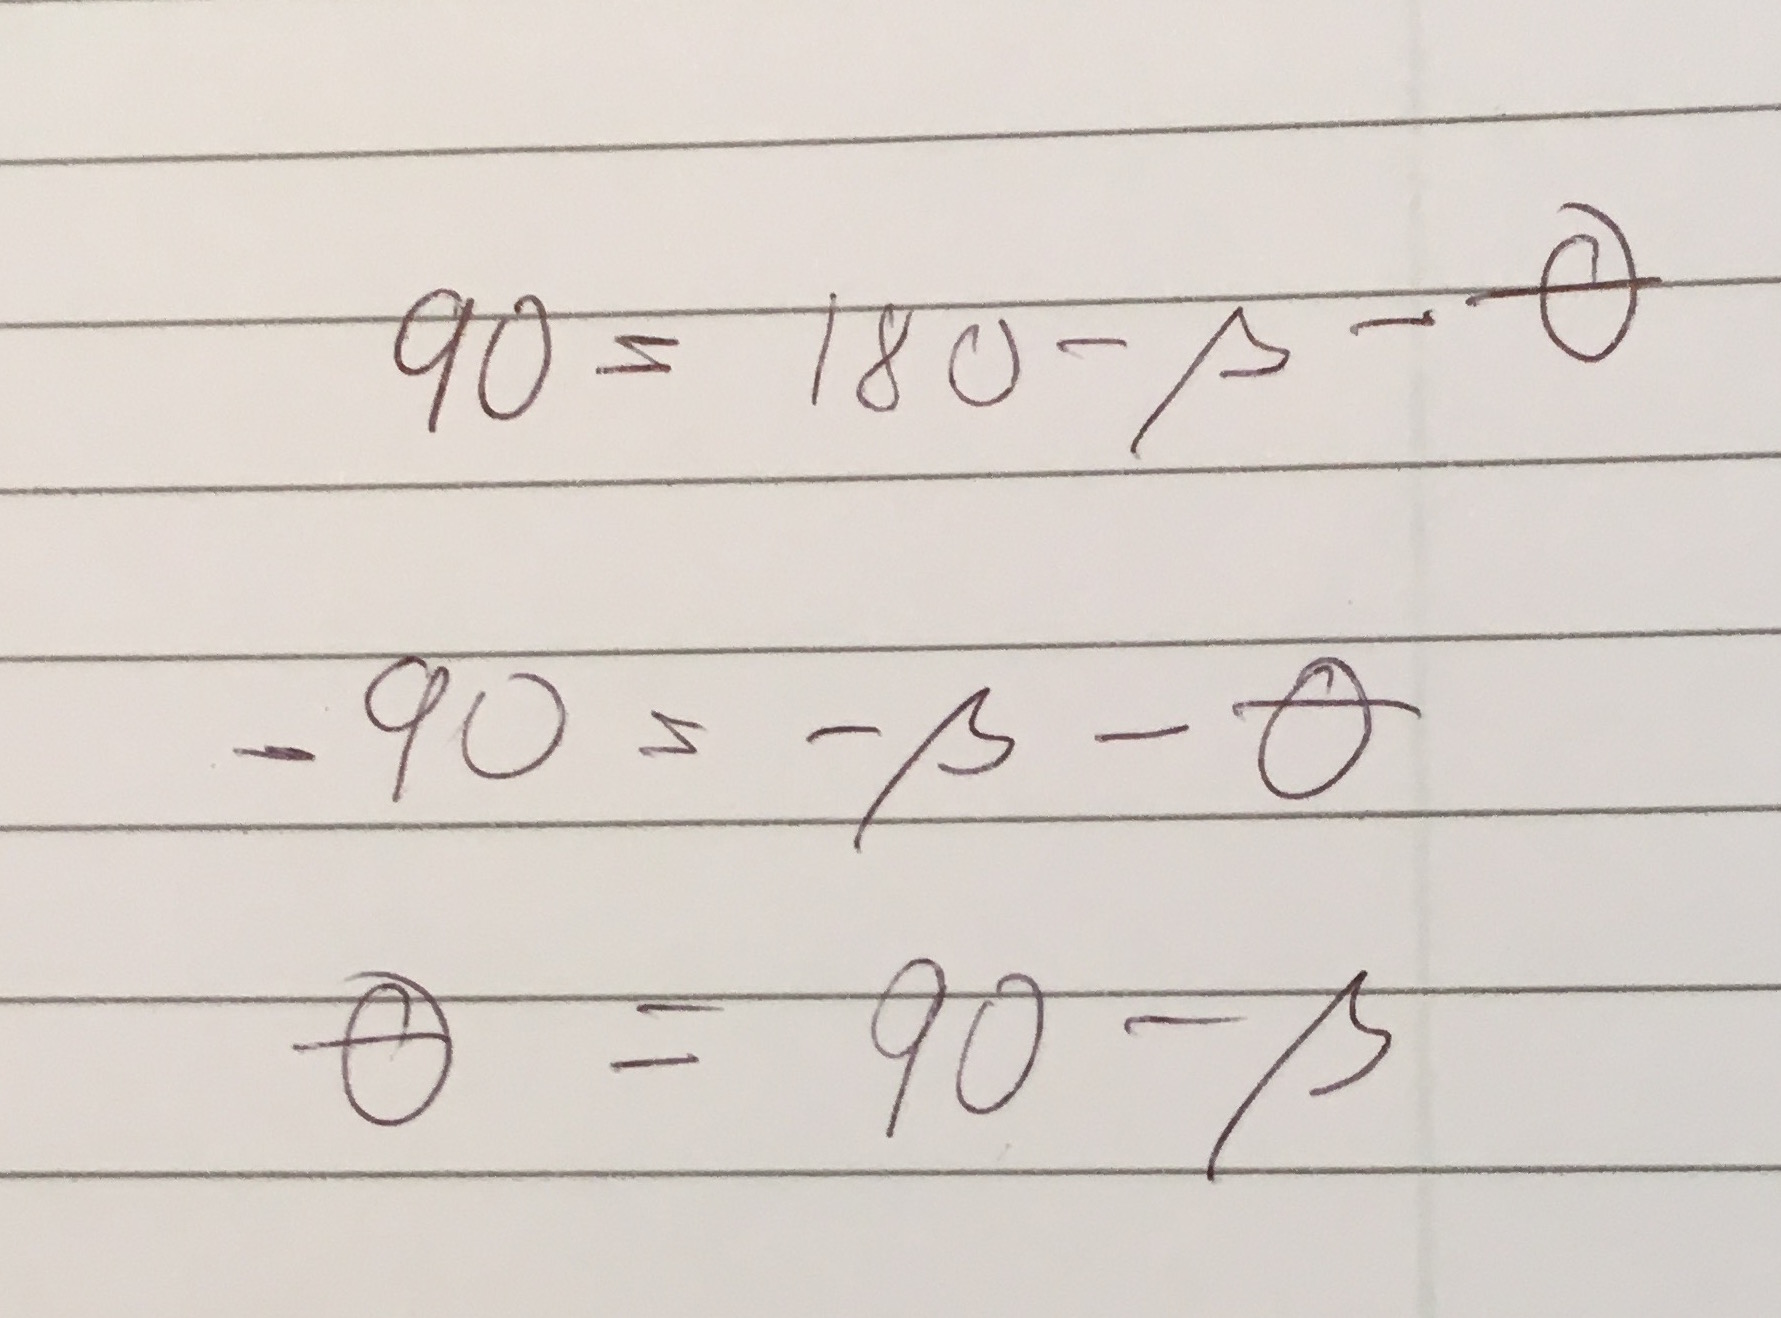 90 = 180 - β - θ
-90 = -β - θ
θ = 90 - β